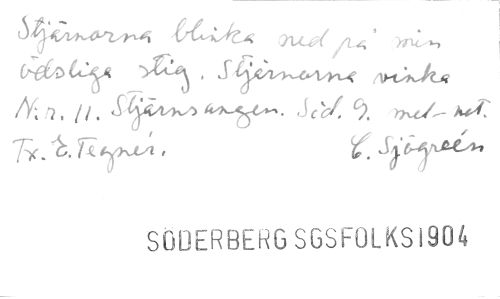 Stjärnorna blinka ned på min
ödsliga stig. Stjärnorna vinka
N:r. 11. Stjärnsången. Sid. 9. mel-not.
Tx. E. Tegnér. C. Sjögreén
SÖDERBERG SGSFOLKS1904